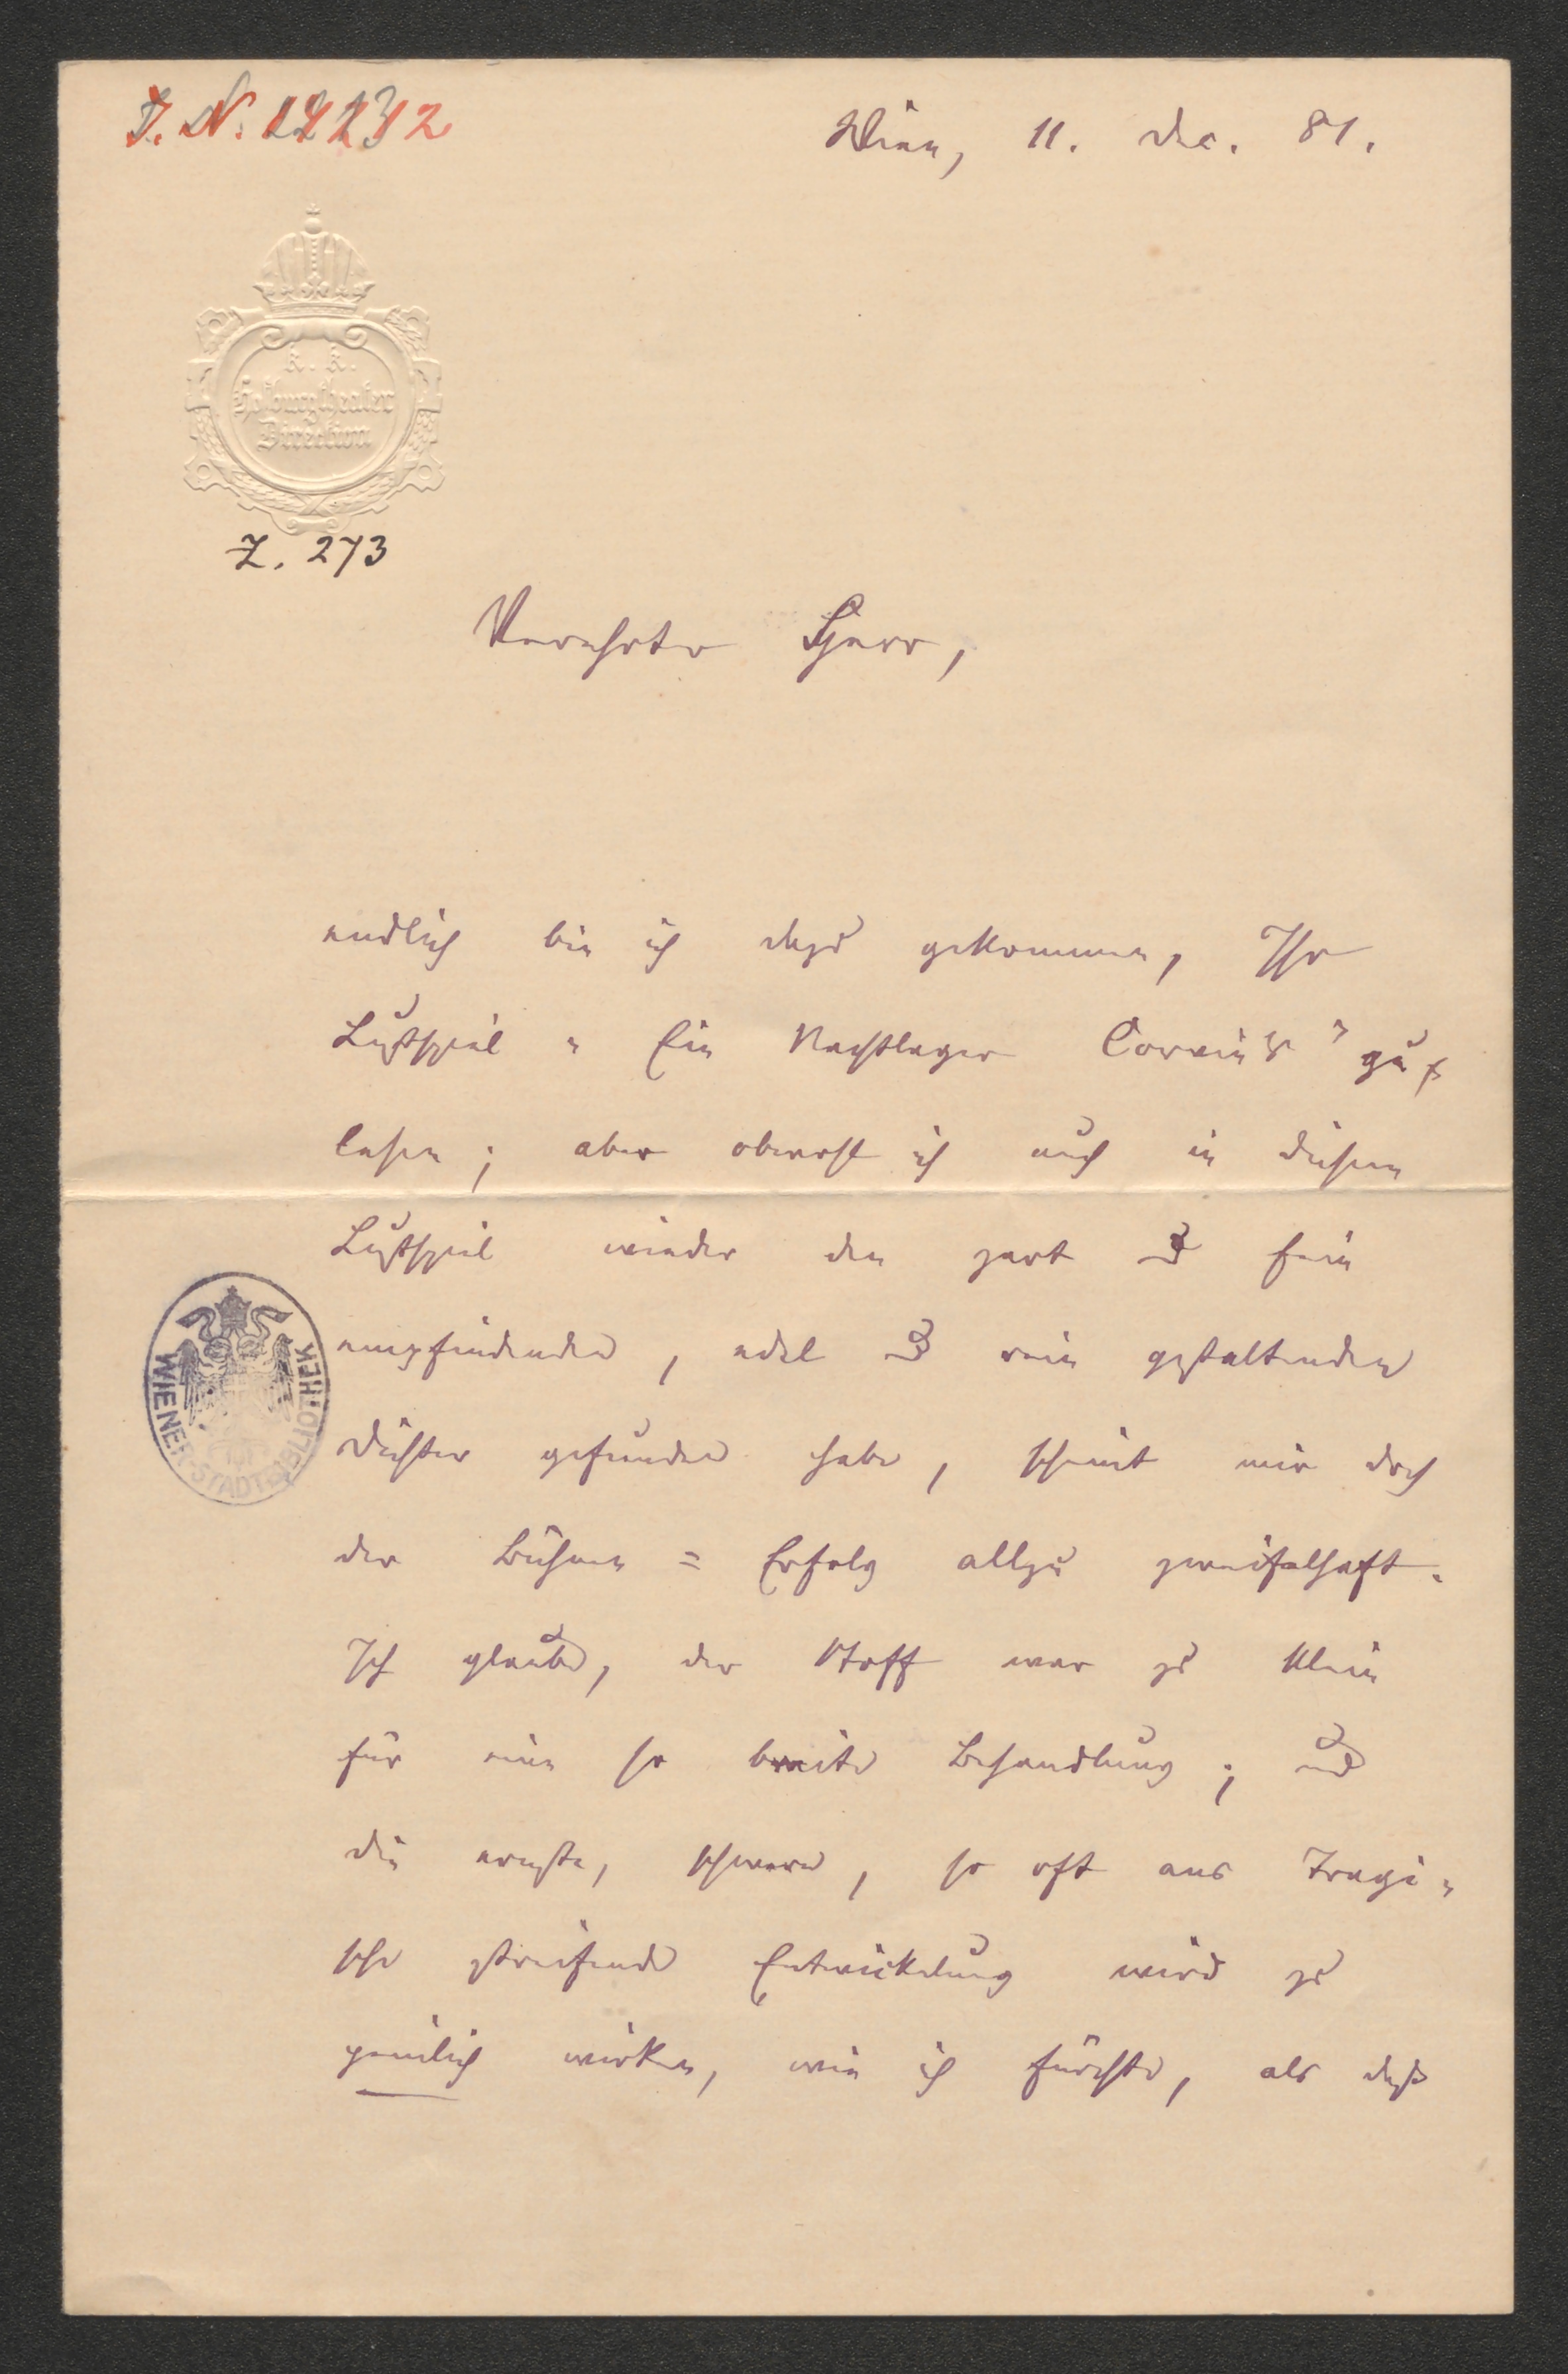 J. N. 12232
Wien, 11. Dec. 81.
k. k.
Hofburgtheater
Direction
Z. 273
Verehrter Herr,
endlich bin ich dazu gekommen, Ihr
Lustspiel „Ein Nachtlager Corvin's" zu
lesen; aber obwohl ich auch in diesem
Lustspiel wieder den zart & fein
empfindenden, edel & rein gestaltenden
Dichter gefunden habe, scheint mir doch
der Bühnen=Erfolg allzu zweifelhaft.
Ich glaube, der Stoff war zu klein
für eine so breite Behandlung; und
die ernste, schwere, so oft ans Tragi-
sche streifende Entwickelung wird zu
peinlich wirken, wie ich fürchte, als daß
WIENER STADTBIBLIOTHEK